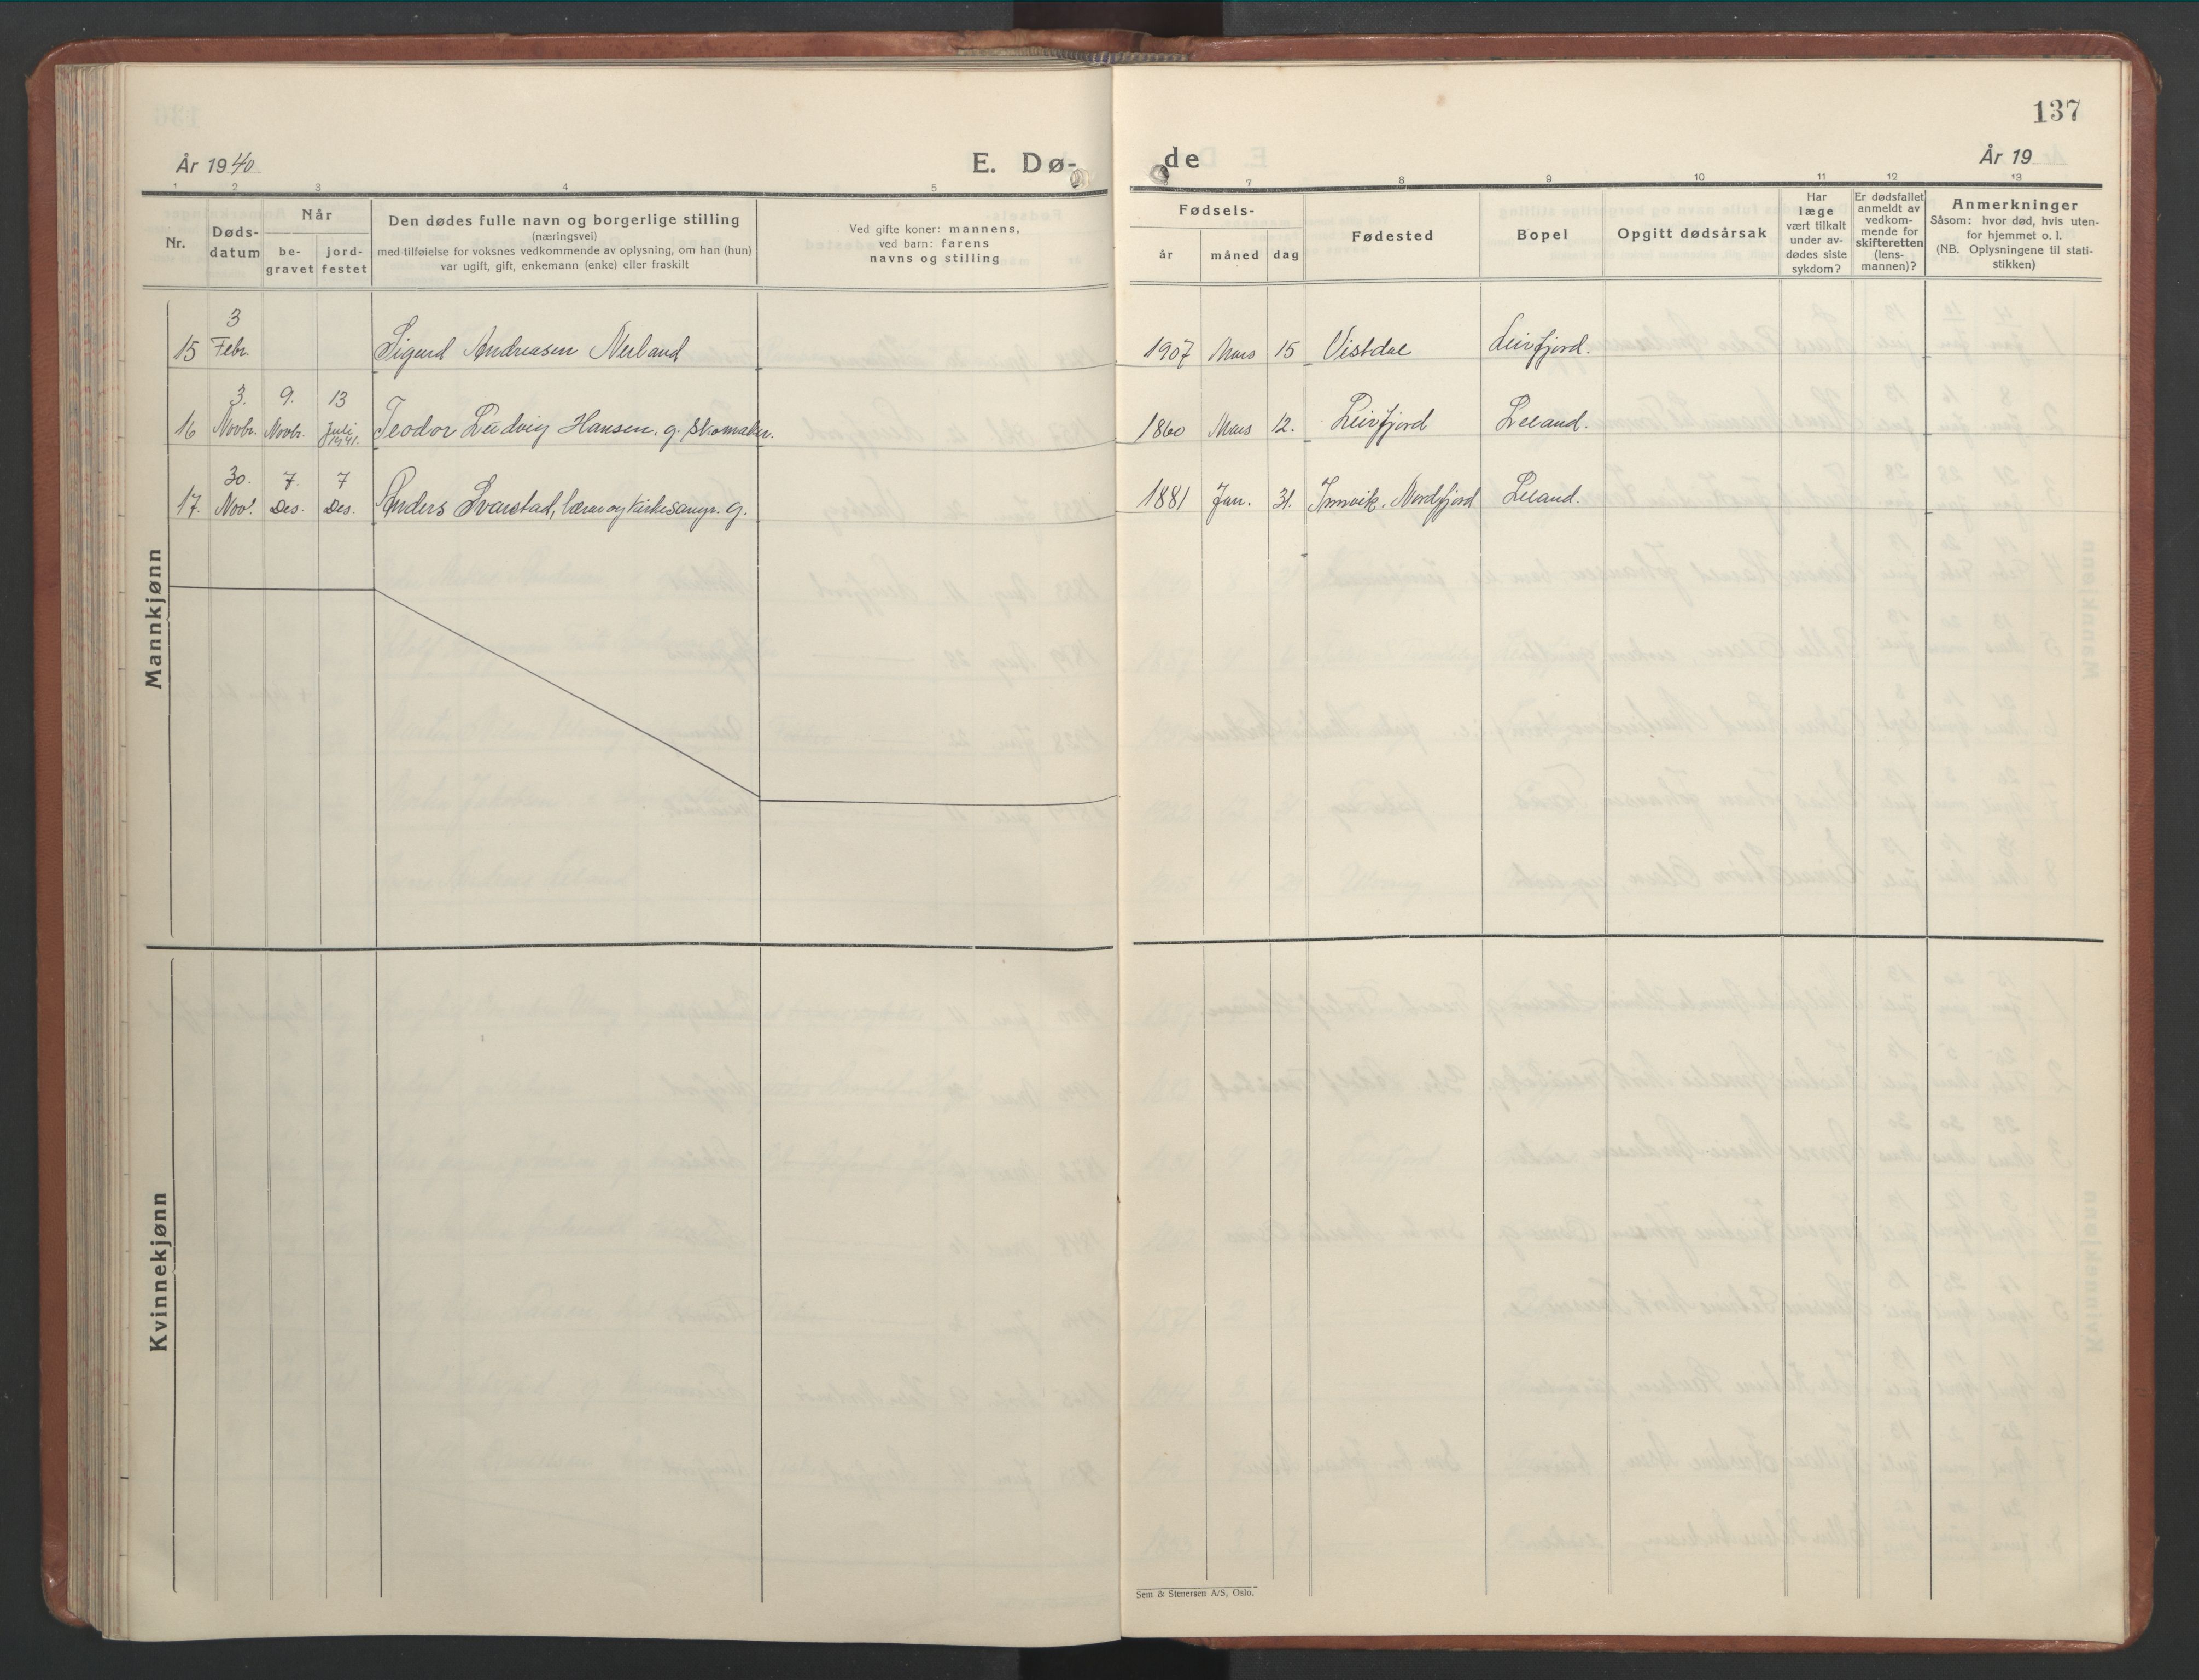 137
År 1940
E. Dø-
de
År 19
1 2 3 4 5 7 8 9 10 11 12 13
Nr.
Døds-
datum
Når
be-
gravet
jord-
festet
Den dødes fulle navn og borgerlige stilling
(næringsvei)
med tilføielse for voksnes vedkommende av oplysning, om han (hun)
var ugift, gift, enkemann (enke) eller fraskilt
Ved gifte koner: mannens,
ved barn: farens
navns og stilling
Fødsels-
år måned dag
Fødested
Bopel
Opgitt dødsårsak
Har
læge
vært tilkalt
under av-
dødes siste
sykdom?
Er dødsfallet
anmeldt av
vedkom-
mende for
skifteretten
(lens-
mannen)?
Anmerkninger
Såsom: hvor død, hvis uten-
for hjemmet o. l.
(NB. Oplysningene til stati-
stikken)
Mannkjønn
15 3 Febr. Sigurd Andreasen Neeland 1907 Mars 15 Vistdal Leirfjord.
16 3. Novbr. 9. Novbr. 13 Juli 1941. Teodor Ludvig Hansen. g. skomaker. 1860 Mars 12. Leirfjord Leland.
17. 30. Nov. 7. Des. 7 Des. Anders Svarstad, lærer og kirkesangr. g. 1881 Jan. 31. Innvik. Nordfjord Leland.
Kvinnekjønn
Sem & Stenersen A/S, Oslo.